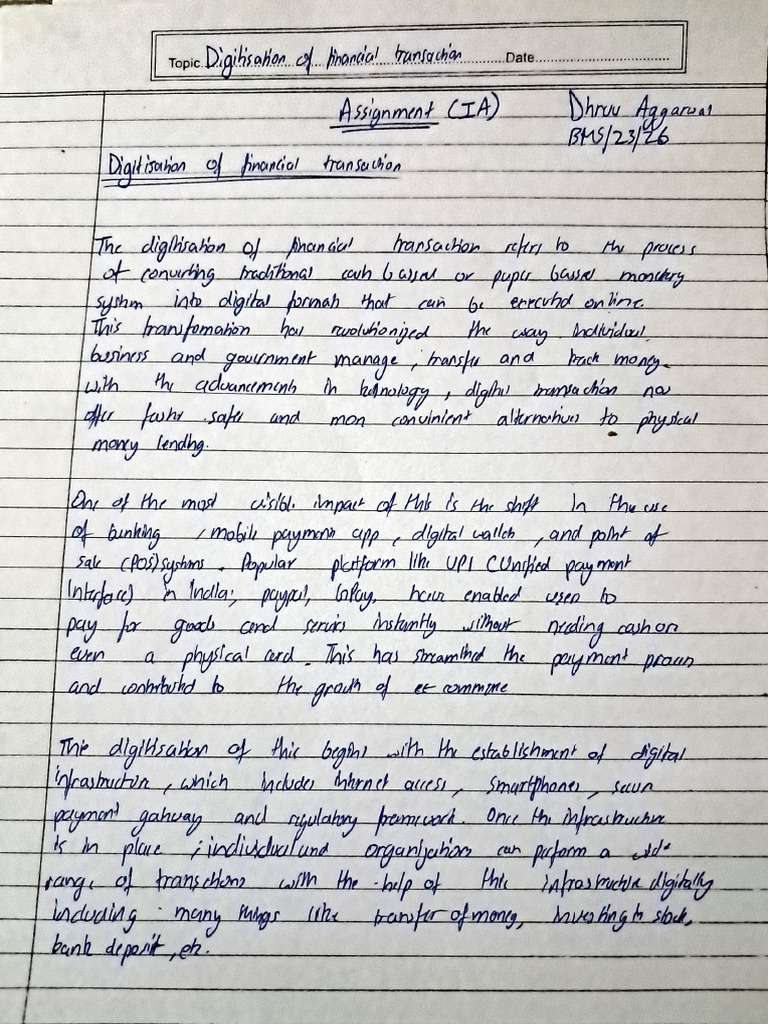 Topic Digitisation of financial transaction Date
Assignment (IA) Dhruv Aggarwal
BMS/23/26
Digitisation of financial transaction
The digitisation of financial transaction refers to the process
of converting traditional cash bassed or paper bassed monetary
system into digital formats that can be executed online.
This transfomation has revolutionized the way individual,
business and government manage, transfer and track money.
with the advancements in technology, digital transaction now
offer faster safer and more convinient alternatives to physical
money lending.
One of the most visible impact of this is the shift in the use
of banking, mobile payment app, digital wallets, and point of
sale (POS) systems. Popular platform like UPI (Unified payment
Interface) in India, paypal, GPay, have enabled users to
pay for goods and servics instantly without needing cash or
even a physical card. This has streamlined the payment process
and contributed to the growth of e commerce
The digitisation of this begins with the establishment of digital
infrastructure, which includes internet access, smartphones, secure
payment gateway and regulatory framework. Once the infrastructure
is in place, individual and organizations can perform a wide
range of transctions with the help of this infrastructure digitally
including many things like transfer of money, investing in stock,
bank deposit, etc.